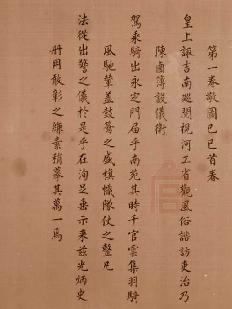 第一卷敬圖己巳首春
皇上諏吉南巡閱視河工省觀風俗諮訪吏治乃
陳鹵簿設儀衛
駕乘騎出永定門届乎南苑其時千官雲集羽騎
風馳葦蓋鼓蕭之盛旗幟隊仗之整凡
法從出警之儀於是乎在洵足垂示来兹光炳史
冊用敢彰之縑素稍摹其萬一焉